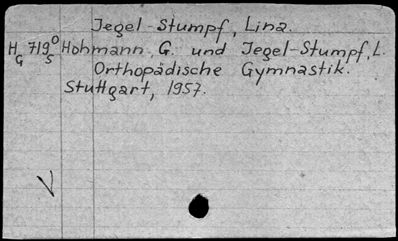 Jegel-Stumpf, Lina.
HG 719 O/5 Hohmann, G. und Jegel-Stumpf, L.
Orthopädische Gymnastik.
Stuttgart, 1957.